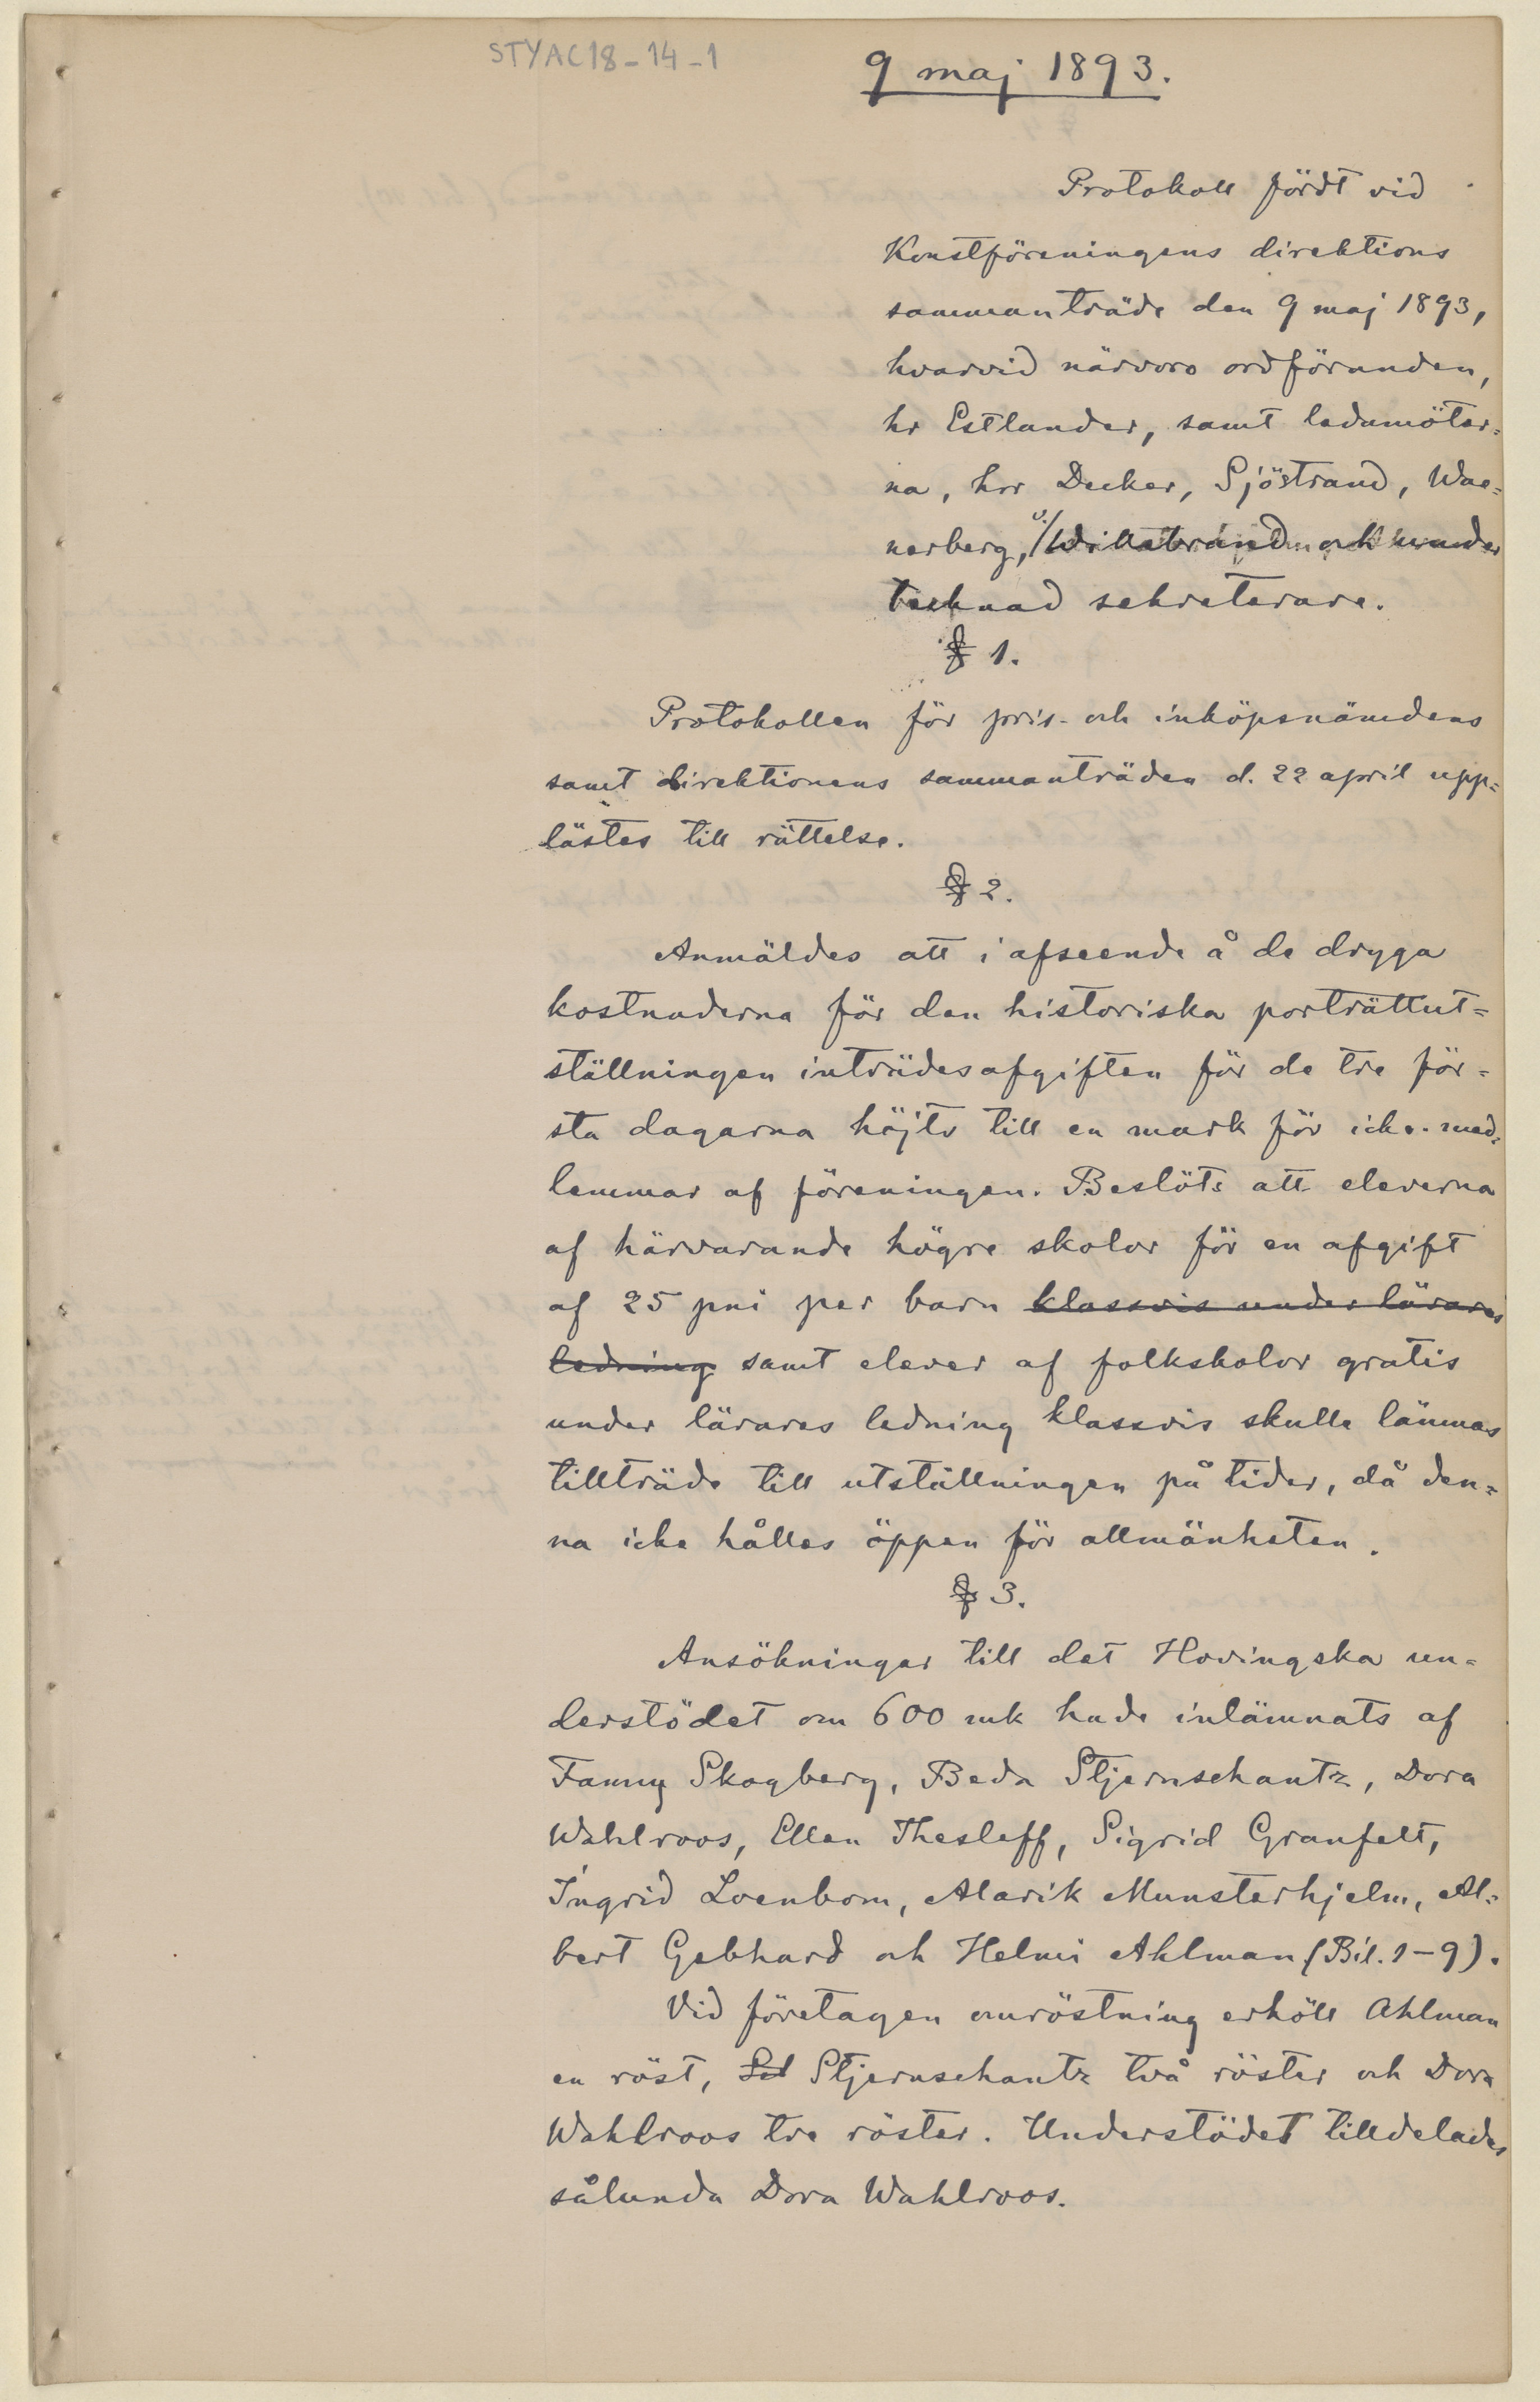 STYAC18-14-1
9 maj 1893.
Protokoll fördt vid
Konstföreningens direktions
sammanträde den 9 maj 1893,
hvarvid närvoro ordföranden,
hr Estlander, samt ledamöter=
na, hrr Decker, Sjöstrand, Wae=
nerberg, v./Willebrand och under
tecknad sekreterare.
§ 1.
Protokollen för pris- och inköpsnämdens
samt direktionens sammanträden d. 22 april upp=
lästes till rättelse.
§ 2.
Anmäldes att i afseende å de dryga
kostnaderna för den historiska porträttut=
ställningen inträdesafgiften för de tre för=
sta dagarna höjts till en mark för icke-med=
lemmar af föreningen. Beslöts att eleverna
af härvarande högre skolor för en afgift
af 25 pni per barn klassvis under lärares
ledning samt elever af folkskolor gratis
under lärares ledning klassvis skulle lämnas
tillträde till utställningen på tider, då den=
na icke hålles öppen för allmänheten.
§ 3.
Ansökningar till det Hovingska un=
derstödet om 600 mk hade inlämnats af
Fanny Skogberg, Beda Stjernschantz, Dora
Wahlroos, Ellen Thesleff, Sigrid Granfelt,
Ingrid Loenbom, Alarik Munsterhjelm, Al=
bert Gebhard och Helmi Ahlman (Bil. 1-9).
Vid företagen omröstning erhöll Ahlman
en röst, Stjernschantz två röster och Dora
Wahlroos tre röster. Understödet tilldelades
sålunda Dora Wahlroos.